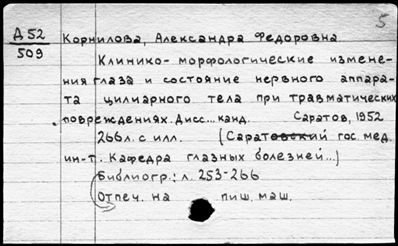 5
Д 52
509
Корнилова, Александра Федоровна
Клинико-морфологические измене-
ния глаза и состояние нервного аппара-
та цилиарного тела при травматических
повреждениях. Дисс... канд. Саратов, 1952
266л. с илл. (Саратовский гос. мед.
ин-т. Кафедра глазных болезней...)
Библиогр.: л. 253-266
Отпеч. на пиш. маш.